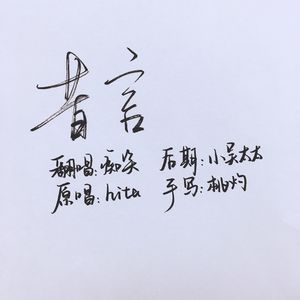 昔言
翻唱:痴朵 后期:小吴太太
原唱:hita 手写:桃灼